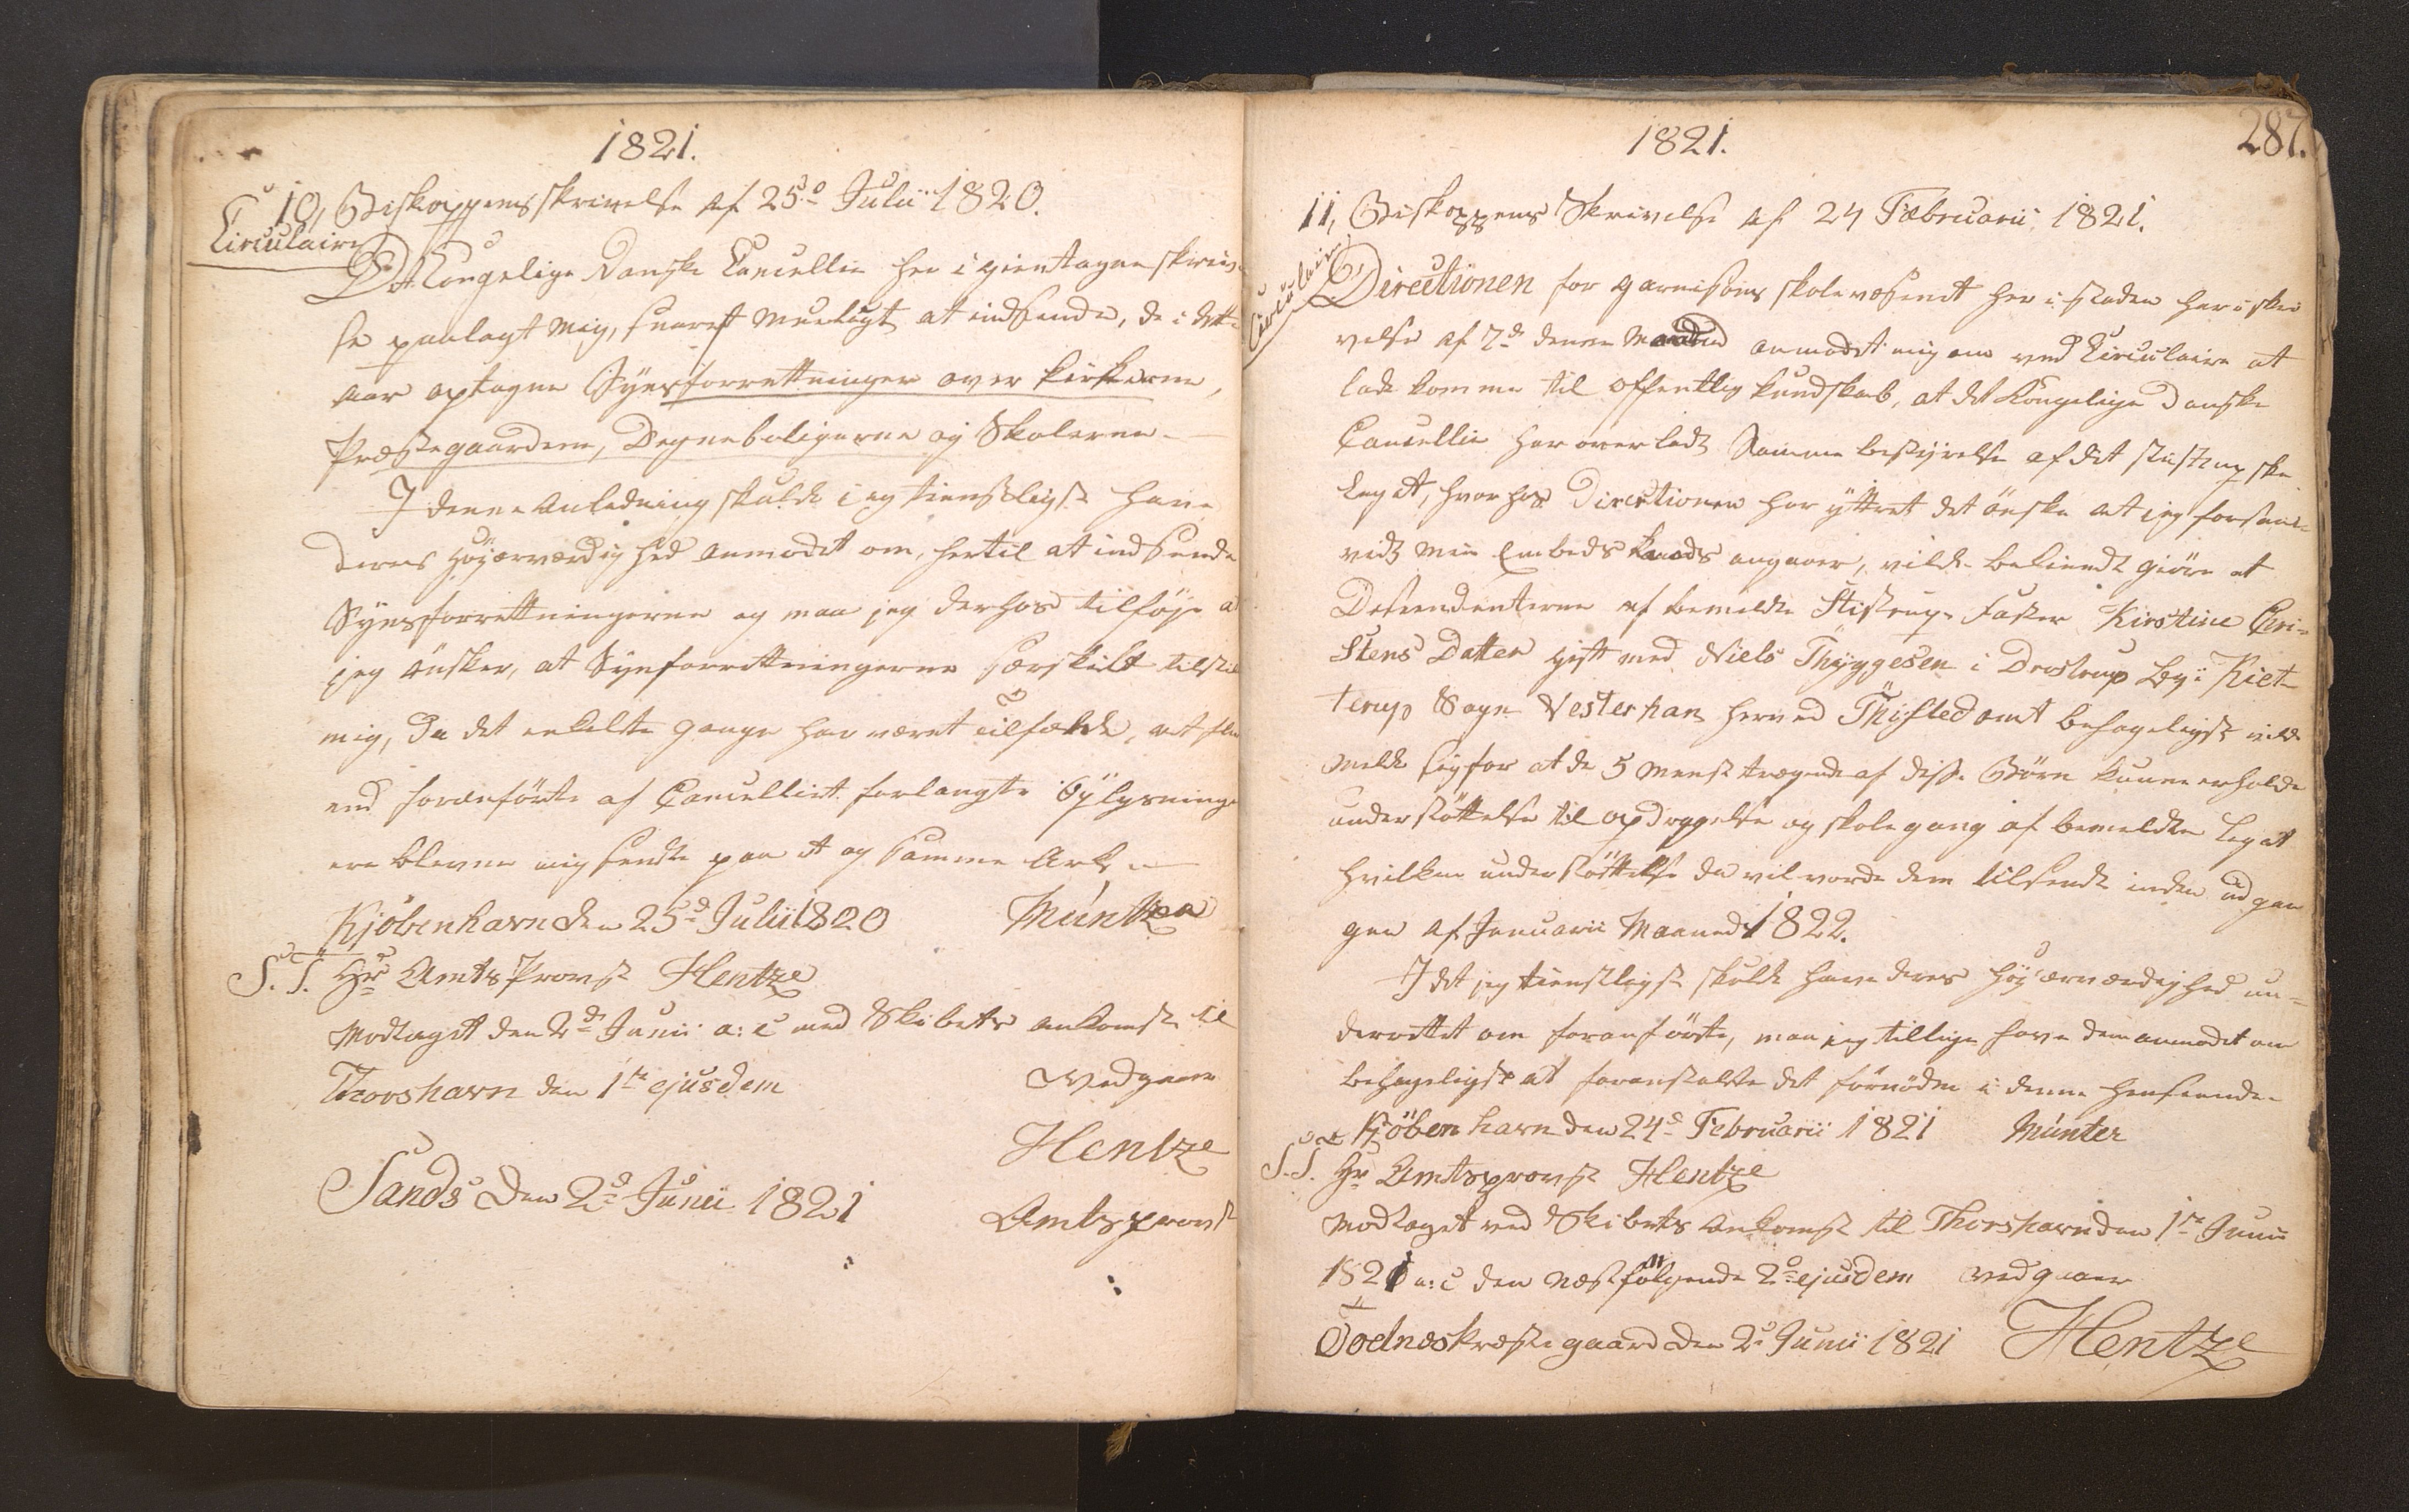 1821.
10, Biskoppens skrivelse af 25de Julii 1820.
Circulaire
Det Kongelige Danske Cancellie har i gientagne skrivel-
se paalagt mig, snarest mueligt at indsende, de i dette
Aar optagne Synsforrettninger over Kirkerne,
Præstegaardene, Degneboligerne og Skolerne.
I denne Anledning skulde jeg tienstligst have
deres Høyærværdighed anmodet om, hertil at indsende
Synsforrettningerne og maa jeg derhos tilføje at
jeg ønsker, at Synsforrettningerne særskilt
mig, da det enkelte gange har været tilfælde, at
end foranførte af Cancelliet forlangte Oplysninger
ere blevne mig sendte paa et og samme Ark.
Kjöbenhavn den 25d Julii 1820 Münter
S. T. Hr Amts Provst Hentze
Modtaget den 2d Junii a: c med Skibets ankomst til
Thorshavn den 1te ejusdem vedgaaer
Hentze
Sands den 2d Junii 1821 Amtsprovst
1821. 287.
11, Biskoppens Skrivelse af 24 Februarii 1821.
Circulaire
Directionen for garnisons skolevæsenet her i staden har i skri
velse af 7de denne Maaned anmodet mig om ved Circulaire at
lade komme til offentlig kundskab, at det Kongelige Danske
Cancellie har overladt Samme bestyrelse af det Stistrupske
Legat, hvorhos Directionen har yttret det ønske at jeg forsaa-
vidt min Embeds Kreds angaaer, vilde bekiendt giøre at
Descendenterne af bemeldte Stistrups Faster Kirstine Chri-
stens Datter gift med Niels Thyggesen i Drostrup By i Kiet-
terup Sogn Vester han herred Thisted amt behageligst vilde
melde sig for at de 5 meest trængende af disse Børn kunne erholde
understøttelse til opdragelse og skolegang af bemeldte Legat
hvilken understøttelse da vil vorde dem tilsendt inden udgan
gen af Januarii Maaned 1822.
I det jeg tienstligst skulde have deres høyærværdighed un-
derrettet om foranførte, maa jeg tillige have dem anmodet om
behageligst at foranstalte det fornødne i denne henseende
Kjöbenhavn den 24d Februarii 1821 Münter
S. T. Hr Amtsprovst Hentze
Modtaget ved Skibets Ankomst til Thorshavn den 1te Junii
1821 a: c den næstfølgende 2d ejusdem vedgaaer
Todnæs Præstegaard den 2d Junii 1821 Hentze